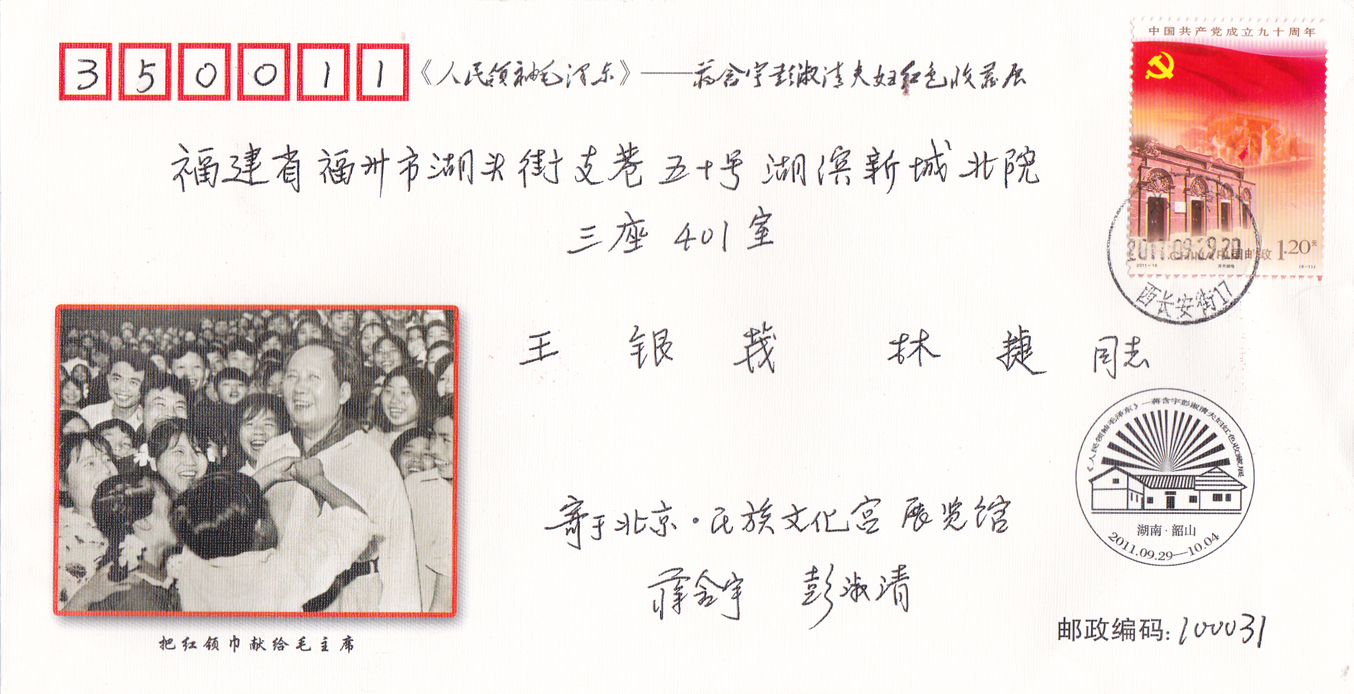 350011
《人民领袖毛泽东》——蒋含宇彭淑清夫妇红色收藏展
中国共产党成立九十周年
福建省福州市湖头街支巷五十号湖滨新城北院
三座401室
CHINA 中国邮政 1.20元
2011-16
(6-1)J
2011.09.29.20
西长安街17
王银莪 林捷 同志
《人民领袖毛泽东》—蒋含宇彭淑清夫妇红色收藏展
湖南·韶山
2011.09.29—10.04
寄于北京·民族文化宫展览馆
蒋含宇 彭淑清
把红领巾献给毛主席
邮政编码:100031